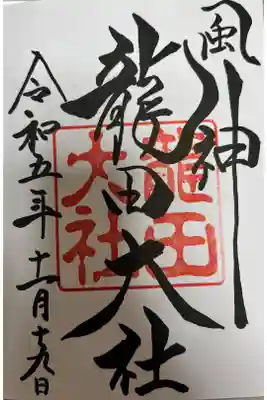 風神
龍田大社
龍田大社
令和五年十一月十九日